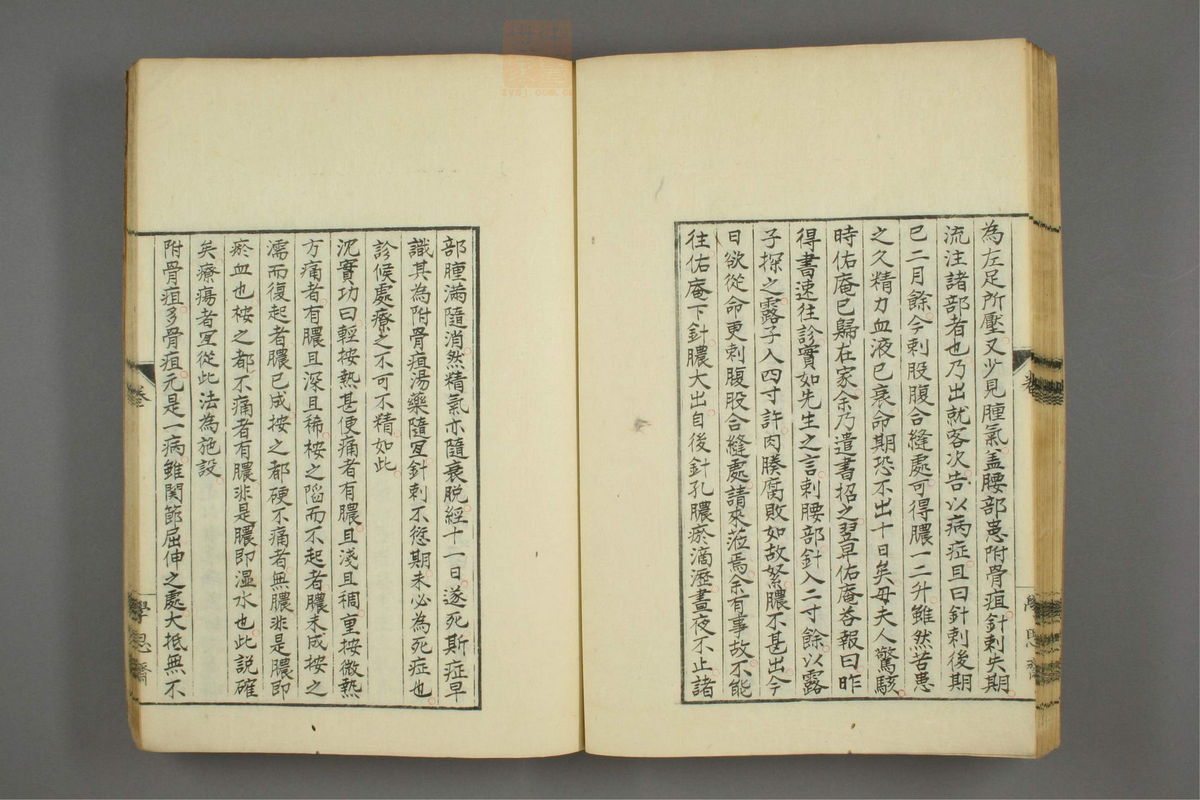 為左足所壓又少見腫氣蓋腰部患附骨疽針刺失期
流注諸部者也乃出就客次告以病症且曰針刺後期
已二月餘今刺股腹合縫處可得膿一二升雖然苦患
之久精力血液已衰命期恐不出十日矣母夫人驚駭
時佑庵已歸在家余乃遣書招之翌早佑庵答報曰昨
得書速往診實如先生之言刺腰部針入二寸餘以露
子探之露子入四寸許肉腠腐敗如故絮膿不甚出今
日欲從命更刺腹股合縫處請來蒞焉余有事故不能
往佑庵下針膿大出自後針孔膿瘀滴瀝晝夜不止諸
部腫滿隨消然精氣亦隨衰脫經十一日遂死斯症早
識其為附骨疽湯藥隨宜針刺不愆期未必為死症也
診候處療之不可不精如此
沉實功曰輕按熱甚便痛者有膿且淺且稠重按微熱
方痛者有膿且深且稀按之陷而不起者膿未成按之
濡而復起者膿已成按之都硬不痛者無膿非是膿即
瘀血也按之都不痛者有膿非是膿即湿水也此説確
矣療瘍者宜從此法為施設
附骨疽多骨疽元是一病雖関節屈伸之處大抵無不
卷
學思齋
zysj.com.cn